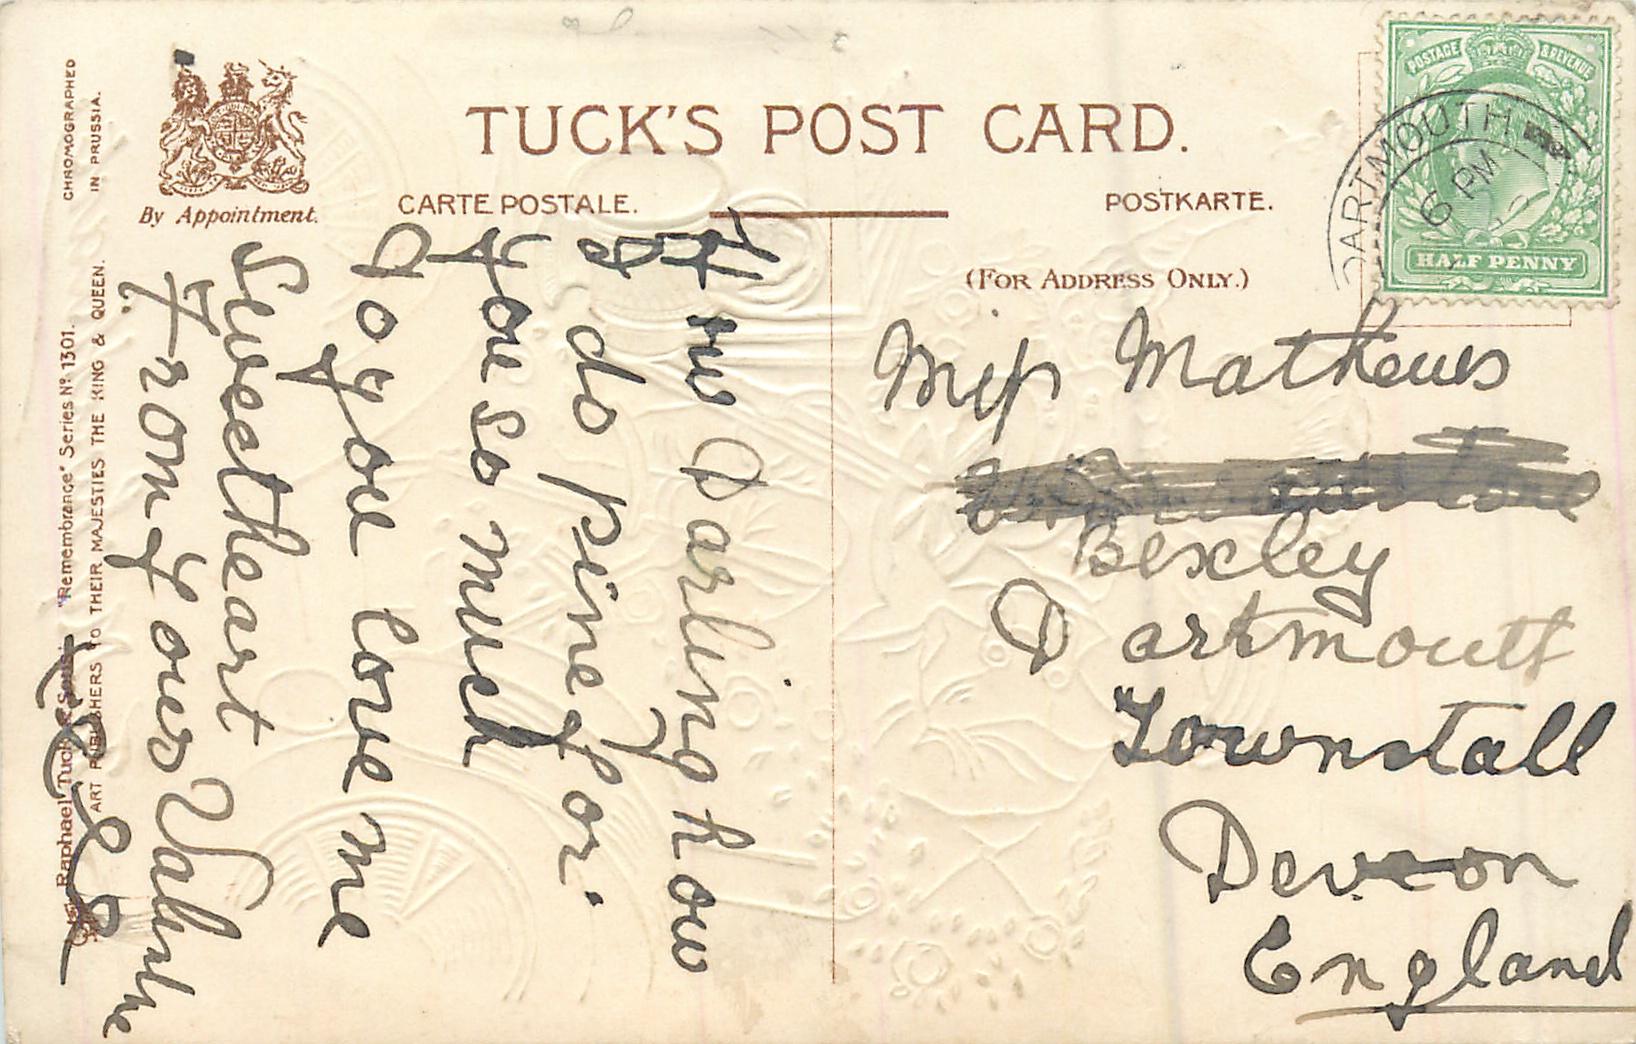 CHROMOGRAPHED
IN PRUSSIA.
By Appointment.
TUCK'S POST CARD.
CARTE POSTALE.
POSTKARTE.
(FOR ADDRESS ONLY.)
POSTAGE & REVENUE
HALF PENNY
DARTMOUTH
6 PM
Raphael Tuck & Sons' "Remembrance" Series Nº 1301.
ART PUBLISHERS TO THEIR MAJESTIES THE KING & QUEEN.
Miss Mathews
Bexley
Dartmouth
Townstall
Devon
England
Darling how
I do pine for
you so much
Do you love me
Sweetheart
From your Valentine